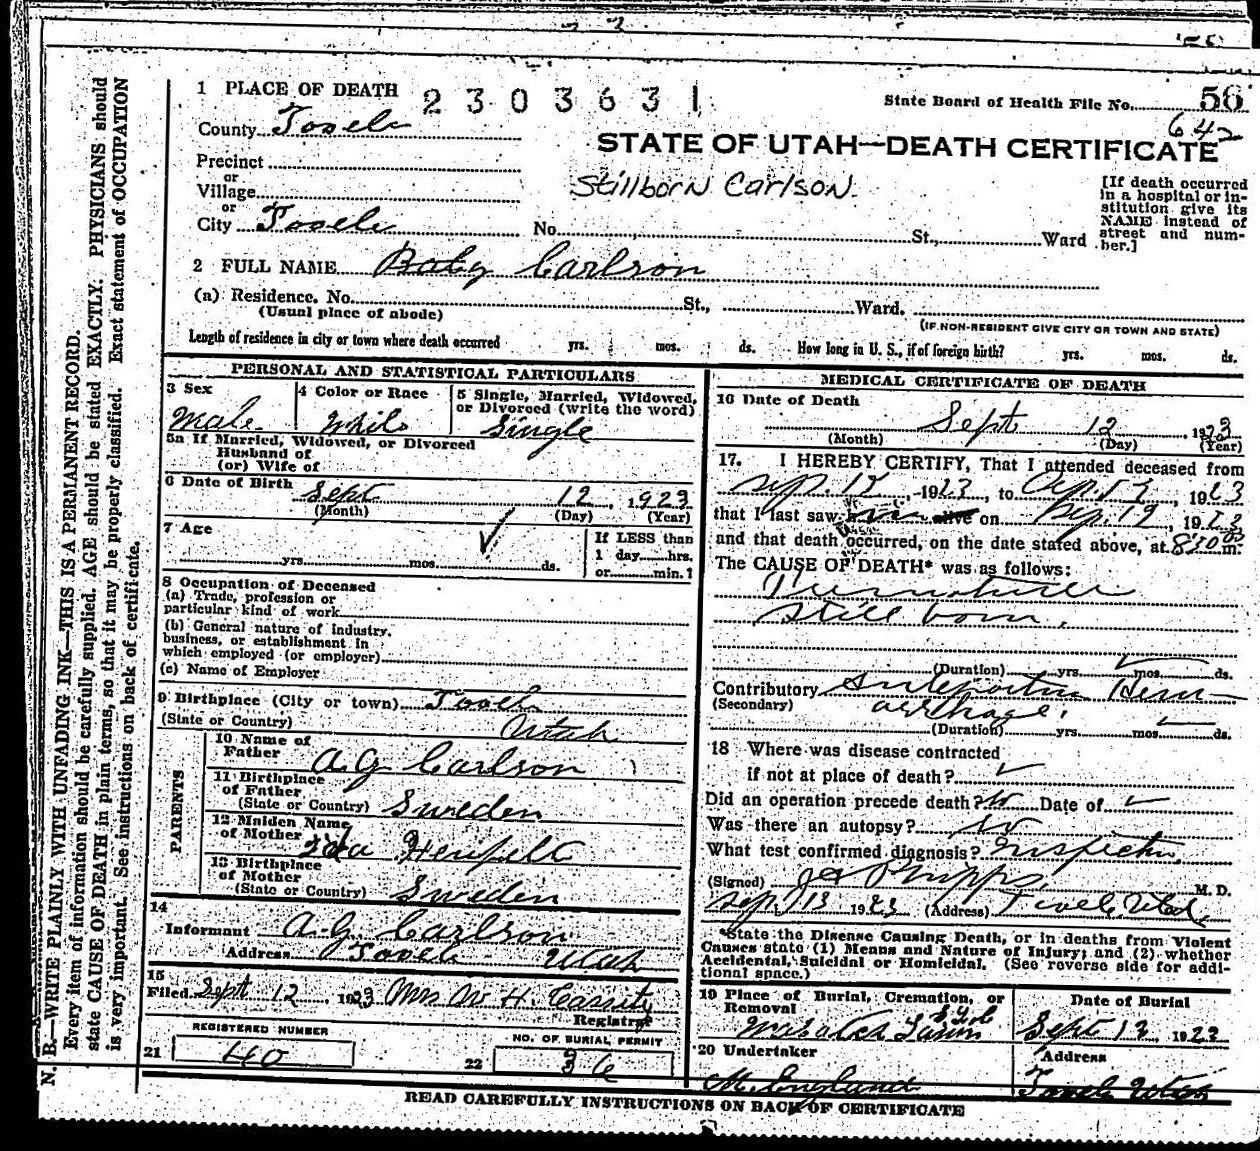 1 PLACE OF DEATH 2303631 State Board of Health File No. 56
642
County Tooele
STATE OF UTAH—DEATH CERTIFICATE
Precinct
or
Village
Stillborn Carlson.
[If death occurred in a hospital or institution give its NAME instead of street and number.]
or
City Tooele No. St., Ward
2 FULL NAME Baby Carlson
(a) Residence. No. St., Ward.
(Usual place of abode) (IF NON-RESIDENT GIVE CITY OR TOWN AND STATE)
Length of residence in city or town where death occurred yrs. mos. ds. How long in U. S., if of foreign birth? yrs. mos. ds.
PERSONAL AND STATISTICAL PARTICULARS
3 Sex 4 Color or Race 5 Single, Married, Widowed, or Divorced (write the word)
Male White Single
5a If Married, Widowed, or Divorced
Husband of
(or) Wife of
6 Date of Birth Sept 12, 1923
(Month) (Day) (Year)
7 Age If LESS than
yrs. mos. ds. 1 day hrs.
or min.?
8 Occupation of Deceased
(a) Trade, profession or
particular kind of work
(b) General nature of industry,
business, or establishment in
which employed (or employer)
(c) Name of Employer
9 Birthplace (City or town) Tooele
(State or Country) Utah
PARENTS
10 Name of Father A. G. Carlson
11 Birthplace of Father
(State or Country) Sweden
12 Maiden Name of Mother Ida
13 Birthplace of Mother
(State or Country) Sweden
14
Informant A. G. Carlson
Address Tooele Utah
15
Filed Sept 12, 1923 Mrs W. H. Cassity
Registrar
REGISTERED NUMBER NO. OF BURIAL PERMIT
21 40 22 36
MEDICAL CERTIFICATE OF DEATH
16 Date of Death Sept 12, 1923
(Month) (Day) (Year)
17. I HEREBY CERTIFY, That I attended deceased from
Sep. 12, 1923, to 1923
that I last saw alive on Sep. 12, 1923
and that death occurred, on the date stated above, at 8:30 m.
The CAUSE OF DEATH* was as follows:
Premature
still born.
(Duration) yrs. mos. ds.
Contributory Antepartum Hem-
(Secondary) orrhage.
(Duration) yrs. mos. ds.
18 Where was disease contracted
if not at place of death?
Did an operation precede death? No Date of
Was there an autopsy? no
What test confirmed diagnosis? Inspection
(Signed) Phipps, M. D.
Sep. 13 1923 (Address) Tooele Utah,
*State the Disease Causing Death, or in deaths from Violent
Causes state (1) Means and Nature of Injury; and (2) whether
Accidental, Suicidal or Homicidal. (See reverse side for addi-
tional space.)
19 Place of Burial, Cremation, or Removal Date of Burial
Sept 12, 1923
20 Undertaker Address
M. England Tooele Utah
READ CAREFULLY INSTRUCTIONS ON BACK OF CERTIFICATE
N. B.—WRITE PLAINLY WITH UNFADING INK—THIS IS A PERMANENT RECORD.
Every item of information should be carefully supplied. AGE should be stated EXACTLY. PHYSICIANS should
state CAUSE OF DEATH in plain terms, so that it may be properly classified. Exact statement of OCCUPATION
is very important. See instructions on back of certificate.